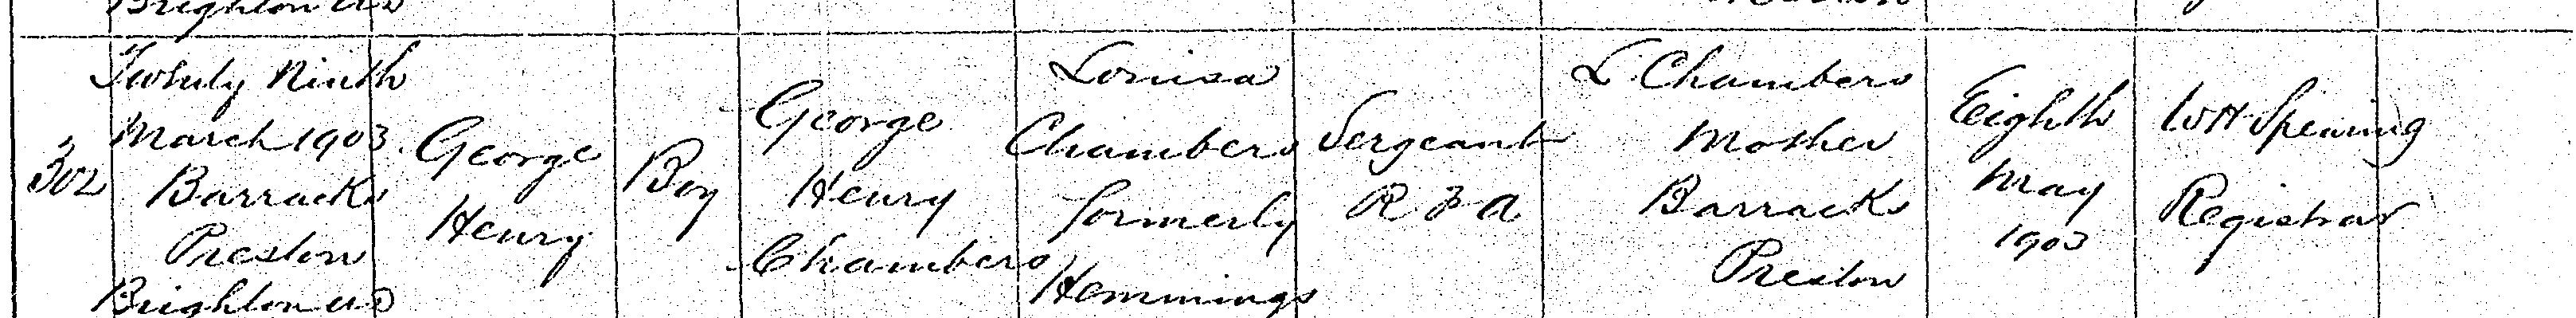 Brighton UD
302
Twenty Ninth
March 1903
Barracks
Preston
Brighton UD
George
Henry
Boy
George
Henry
Chambers
Louisa
Chambers
formerly
Hemmings
Sergeant
R F A
L. Chambers
Mother
Barracks
Preston
Eighth
May
1903
W H Spearing
Registrar